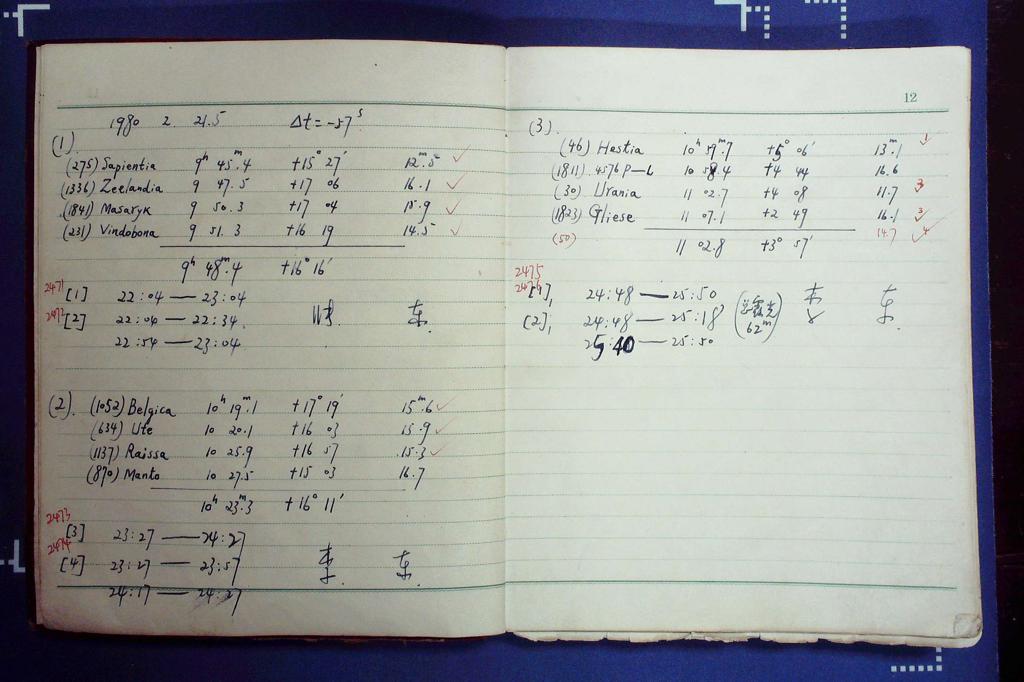 1980 2. 21.5 Δt = -57ˢ
(1).
(275) Sapientia 9ʰ 45ᵐ.4 +15° 27′ 12ᵐ.5 ✓
(1336) Zeelandia 9 47.5 +17 06 16.1 ✓
(1841) Masaryk 9 50.3 +17 04 15.9 ✓
(231) Vindobona 9 51.3 +16 19 14.5 ✓
9ʰ 48ᵐ.4 +16° 16′
2471
[1] 22:04 — 23:04
2472
[2] 22:04 — 22:34 东.
22:54 — 23:04
(2). (1052) Belgica 10ʰ 19ᵐ.1 +17° 19′ 15ᵐ.6 ✓
(634) Ute 10 20.1 +16 03 15.9 ✓
(1137) Raissa 10 25.9 +16 57 15.3 ✓
(870) Manto 10 27.5 +15 03 16.7
10ʰ 23ᵐ.3 +16° 11′
2473
[3] 23:27 — 24:27
2474
[4] 23:27 — 23:57 东.
24:17 — 24:27
12
(3).
(46) Hestia 10ʰ 59ᵐ.7 +5° 06′ 13ᵐ.1
(1811) 4576 P-L 10 58.4 +4 44 16.6
(30) Urania 11 02.7 +4 08 11.7
(1823) Gliese 11 07.1 +2 49 16.1
(50) 14.7 ✓
11 02.8 +3° 57′
2475
2476
24:48 — 25:50
[2], 24:48 — 25:18 东.
62ᵐ
25:40 — 25:50